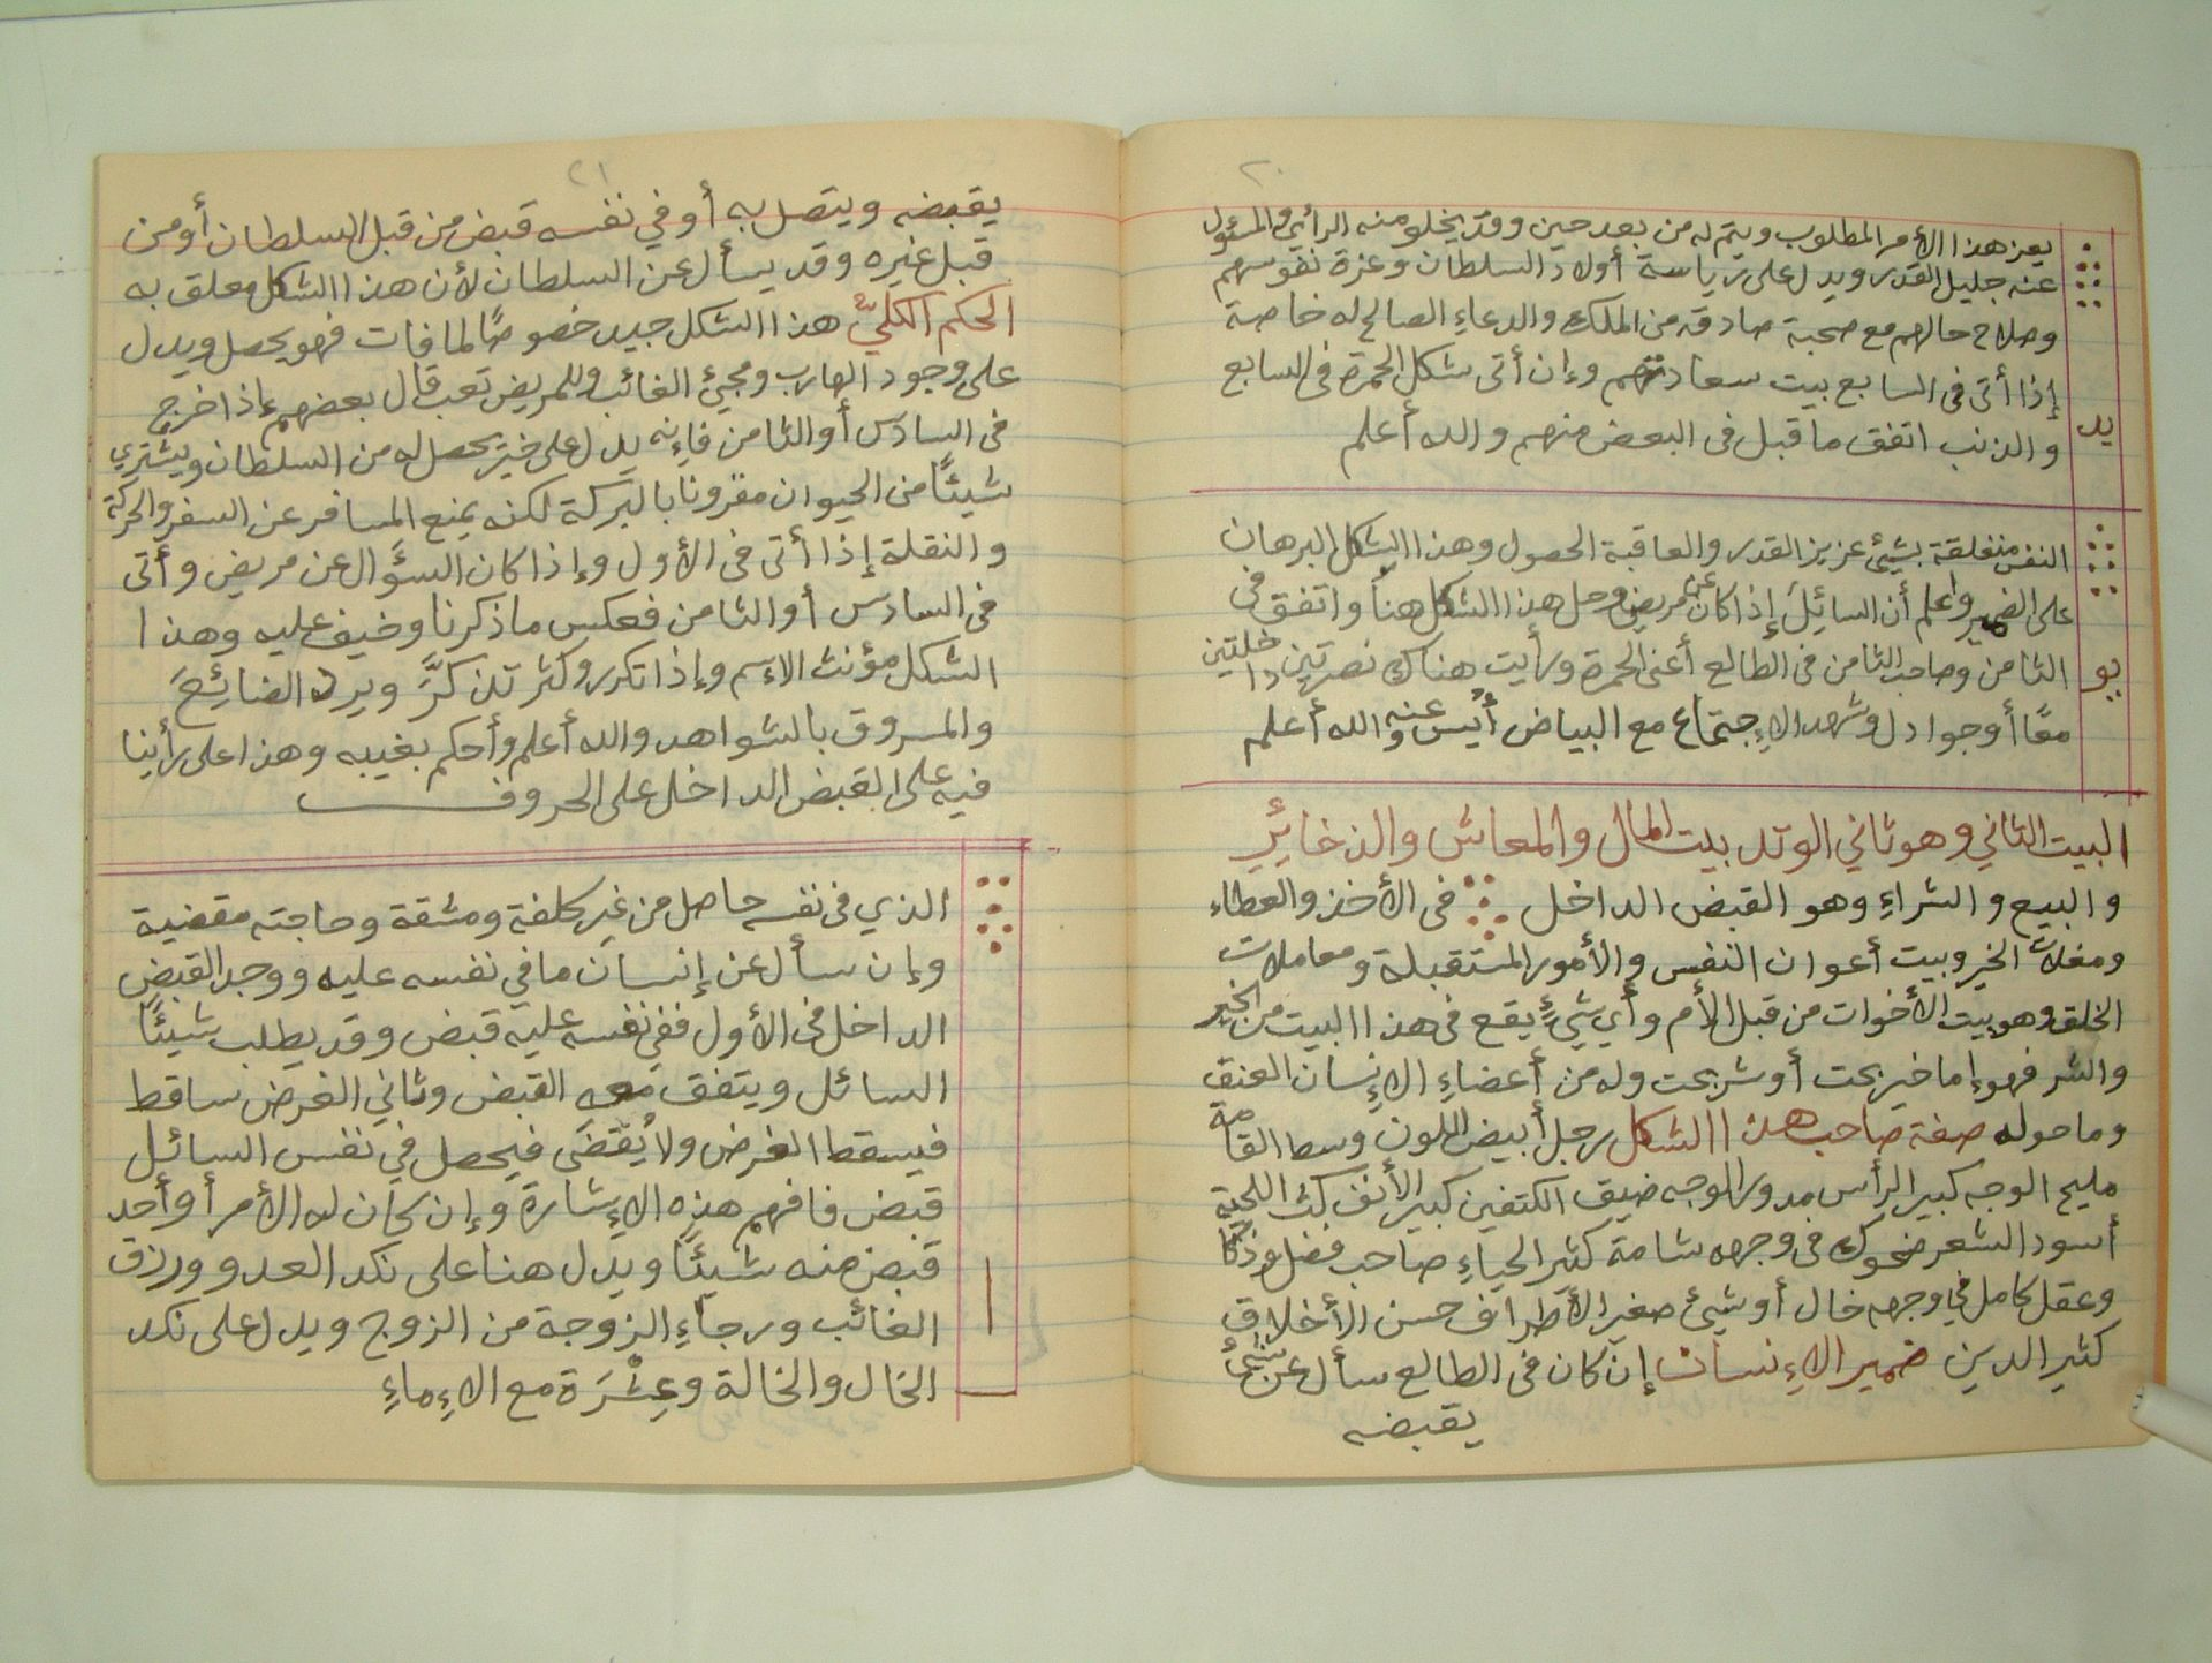 ٢٠
يعز هذا الأمر المطلوب ويتم له من بعد حين وقد يخلو منه الرأي والمسؤول
عنه جليل القدر ويدل على رياسة أولاد السلطان وعزة نفوسهم
وصلاح حالهم مع صحبة صادقه من الملك والدعاءِ الصالح له خاصة
إذا أتى فى السابع بيت سعادتهم وإن أتى شكل الحمرة فى السابع
يد
والذنب اتفق ما قبل فى البعض منهم والله أعلم
النفس متعلقة بشيئ عزيز القدر والعاقبة الحصول وهذا الشكل البرهان
على الضمير واعلم أن السائِلَ إذا كان عن مريض وحل هذا الشكل هنا واتفق في
يو
الثامن وصاحب الثامن فى الطالع أعنى الحمرة ورأيت هناك نصرتين داخلتين
معًا أوجوادل وشهد الإجتماع مع البياض أُيس عنه والله أعلم
البيت الثاني وهو ثاني الوتد بيت المال والمعاش والذخائِر
والبيع والشراءِ وهو القبض الداخل فى الأخذ والعطاء
ومغلات الخير وبيت أعوان النفس والأمور المستقبلة ومعاملات
الخلق وهو بيت الأخوات من قبل الأم وأي شيئٍ يقع فى هذا البيت من الخير
والشر فهو إما خير بحت أو شر بحت وله من أعضاءِ الإنسان العنق
وما حوله صفة صاحب هذا الشكل رجل أبيض اللون وسط القامة
مليح الوجه كبير الرأس مدور الوجه ضيق الكتفين كبير الأنف كث اللحية
أسود الشعر ضحوك فى وجهه شامة كثير الحياءِ صاحب فضل وذكا
وعقل كامل في وجهه خال أو شيئ صغير الأطراف حسن الأخلاق
كثير الدين ضمير الإنسان إن كان فى الطالع سأل عن شيئ
يقبضه
٢١
يقبضه ويتصل به أو في نفسه قبض من قبل السلطان أو من
قبل غيره وقد يسأل عن السلطان لأن هذا الشكل معلق به
الحكم الكليّ هذا الشكل جيد خصوصًا لما فات فهو يحصل ويدل
على وجود الهارب ومجيئ الغائب وللمريض تعب قال بعضهم إذا خرج
فى السادس أو الثامن فإنه يدل على خير يحصل له من السلطان ويشتري
شيئًا من الحيوان مقرونا بالبركة لكنه يمنع المسافر عن السفر والحركة
والنقلة إذا أتى فى الأول وإذا كان السؤال عن مريض وأتى
فى السادس أو الثامن فعكس ما ذكرنا وخيف عليه وهذا
الشكل مؤنث الإسم وإذا تكرر وكثر تذكَّرَ ويرد الضائِعَ
والمسروق بالشواهد والله أعلم وأحكم بغيبه وهذا على رأينا
فيه على القبض الداخل على الحروف
الذي فى نفسه حاصل من غير كلفة ومشقة وحاجته مقضية
وإن سأل عن إنسان ما في نفسه عليه ووجد القبض
الداخل فى الأول ففي نفسه عليه قبض وقد يطلب شيئًا
السائل ويتفق معه القبض وثاني الغرض ساقط
فيسقط الغرض ولا يُقضَى فيحصل في نفس السائل
قبض فافهم هذه الإشارة وإن كان له الأمر أو أحد
ا
قبض منه شيئًا ويدل هنا على نكد العدو ورزق
الغائب ورجاءِ الزوجة من الزوج ويدل على نكد
الخال والخالة وعِشْرَة مع الإماءِ